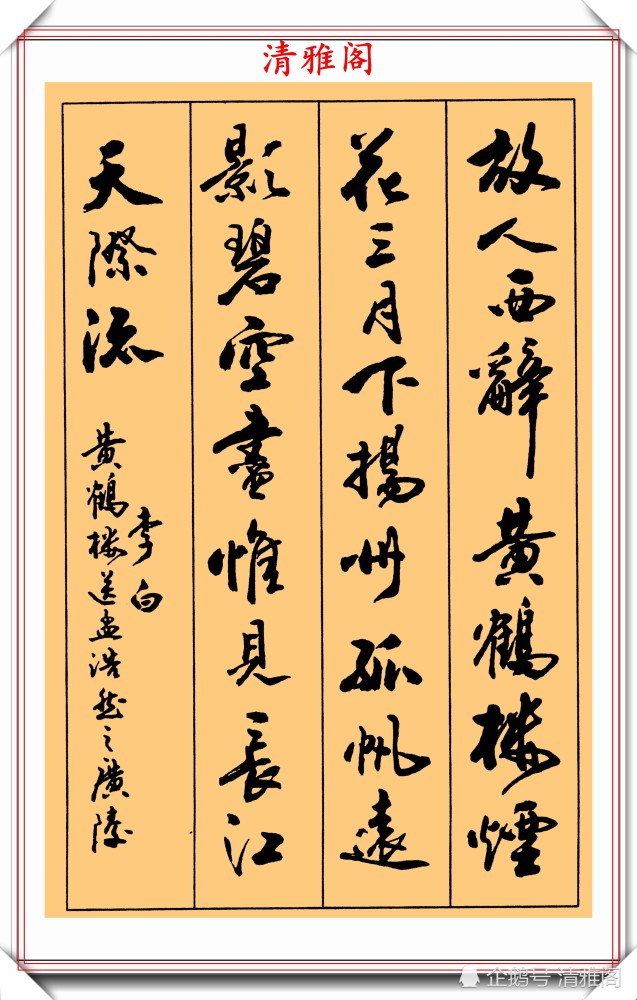 清雅阁
故人西辭黄鶴楼煙
花三月下揚州孤帆遠
影碧空盡惟見長江
天際流
李白
黄鶴楼送孟浩然之廣陵
企鹅号 清雅阁